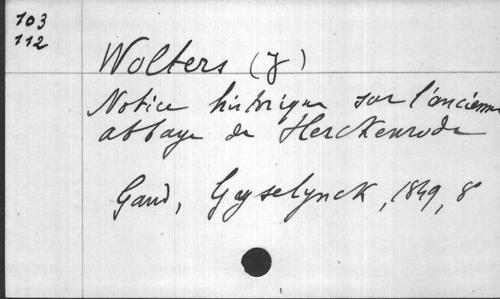 103
112
Wolters (J)
Notice historique sur l'ancienne
abbaye de Herckenrode
Gand, Gyselynck, 1849, 8°